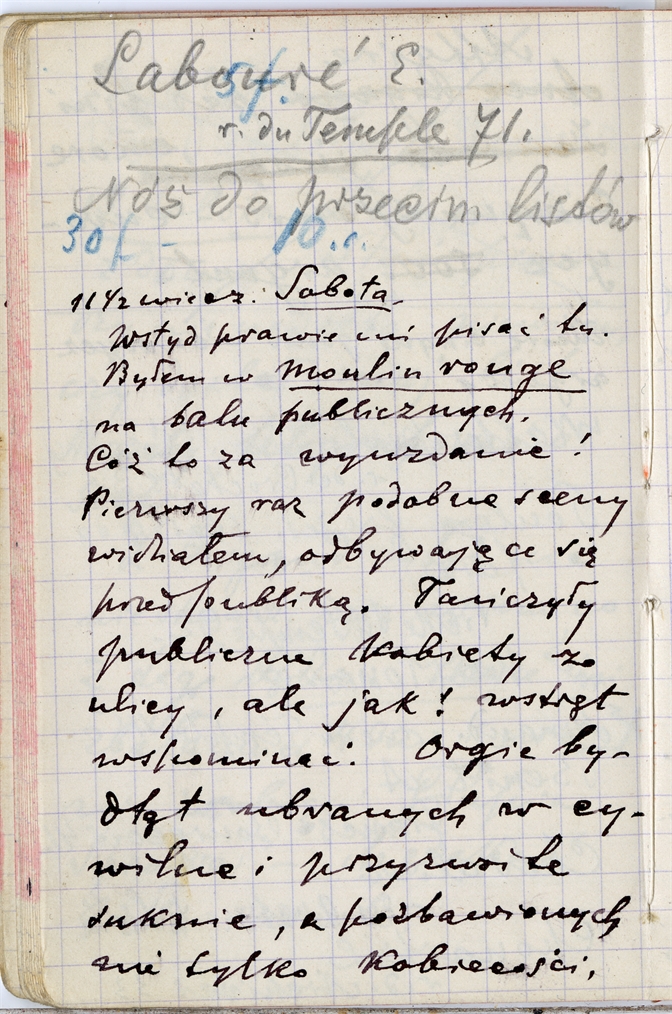 Labouré E.
5f.
r. du Temple 71.
Nóż do przecin listów
30f - 10.c.
11 1/2 wiecz. Sobota.
Wstyd prawie mi pisać tu.
Byłem w moulin rouge
na balu publicznych.
Cóż to za wyuzdanie!
Pierwszy raz podobne sceny
widziałem, odbywające się
przed publiką. Tańczyły
publiczne kobiety za
ulicy, ale jak! wstręt
wspominać. Orgie by-
dląt ubranych w cy-
wilne i przyzwoite
suknie, a pozbawionych
nie tylko kobiecości,